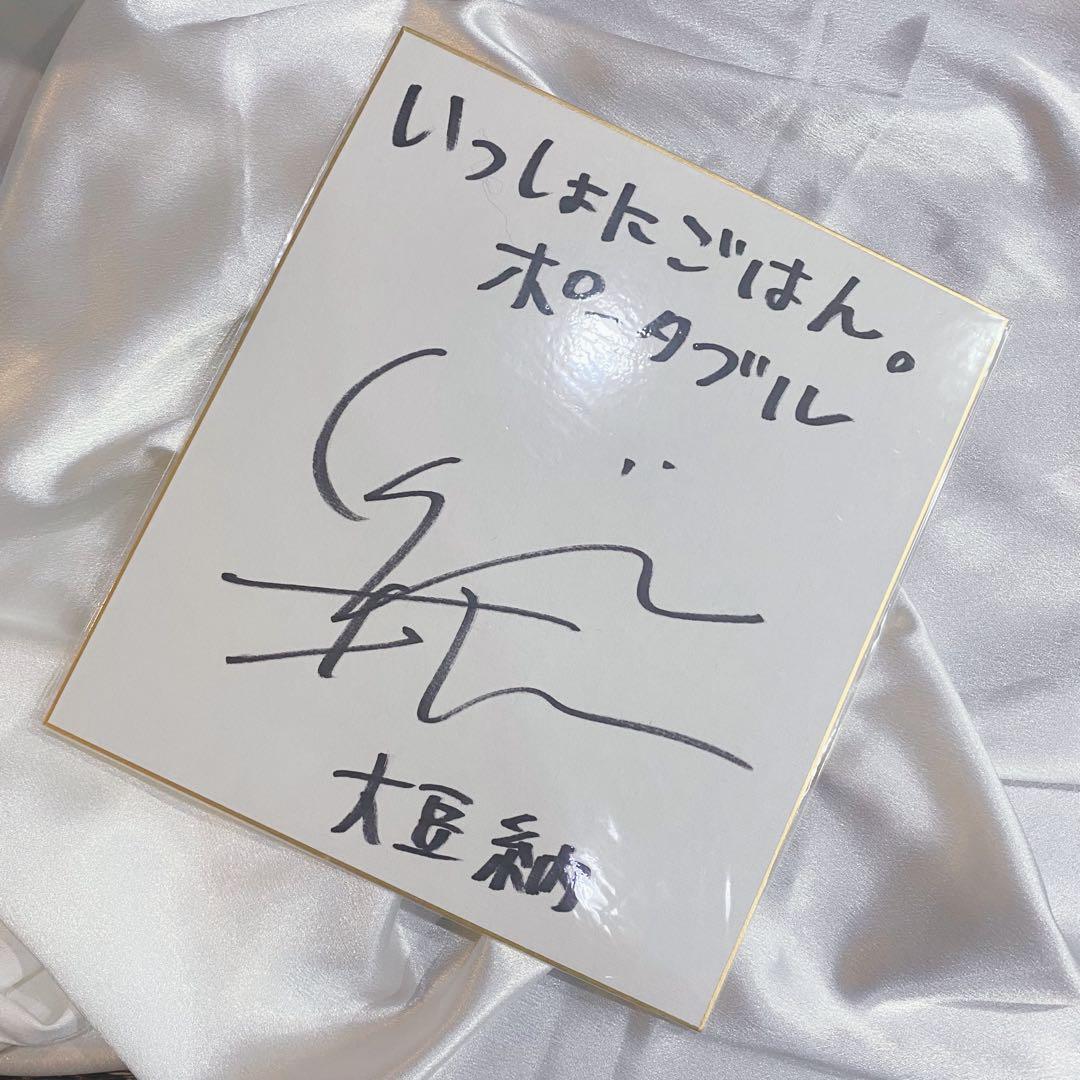 いっしょにごはん。
ポータブル
大豆 納